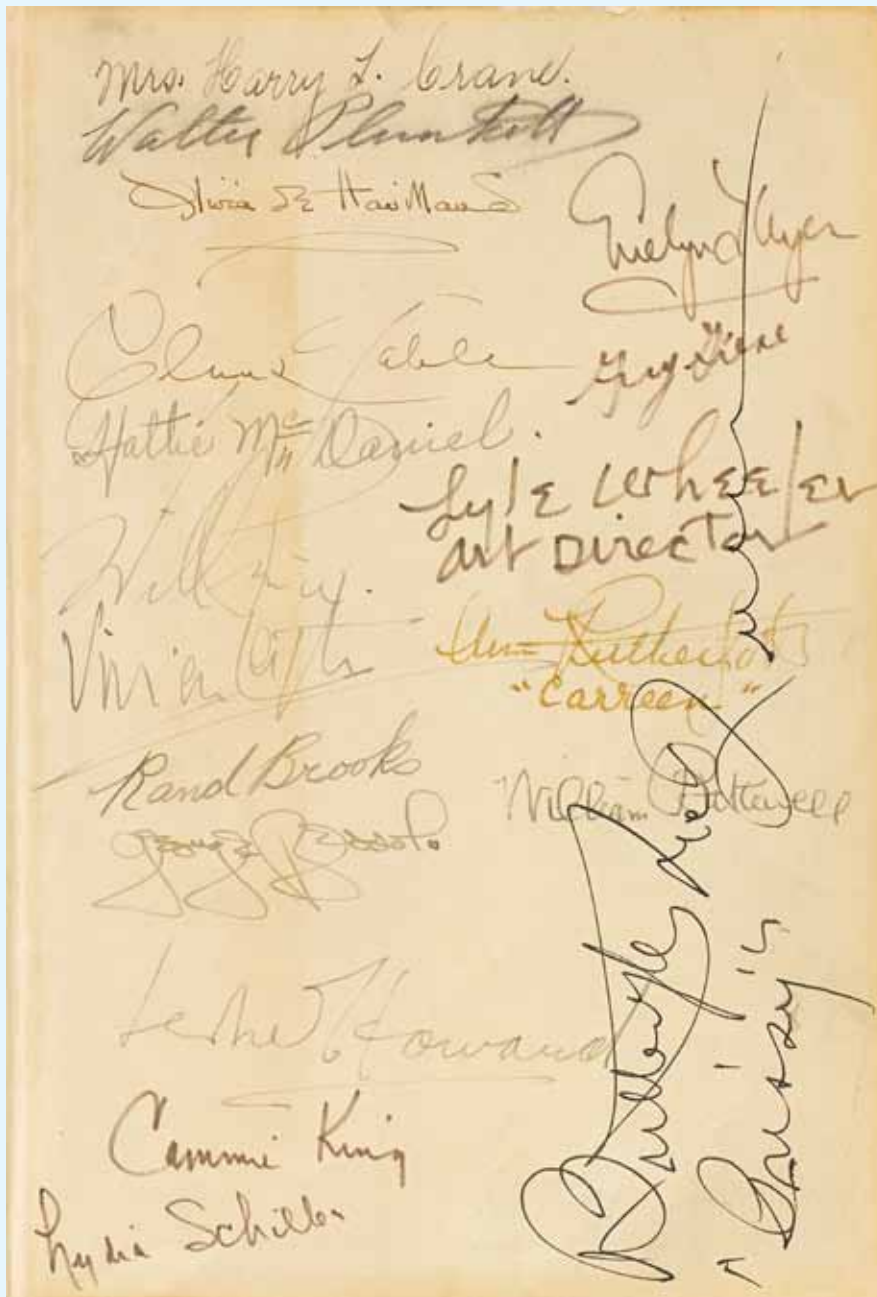 Mrs. Harry L. Crane.
Walter Plunkett
Olivia de Havilland
Evelyn Keyes
Clark Gable
Greg Giese
Hattie McDaniel.
Lyle Wheeler
Art Director
Will Price.
Vivien Leigh
Ann Rutherford
"Carreen"
Rand Brooks
William Bakewell
George Bessolo
Leslie Howard
Cammie King
Lydia Schiller
Butterfly McQueen
"Prissy"